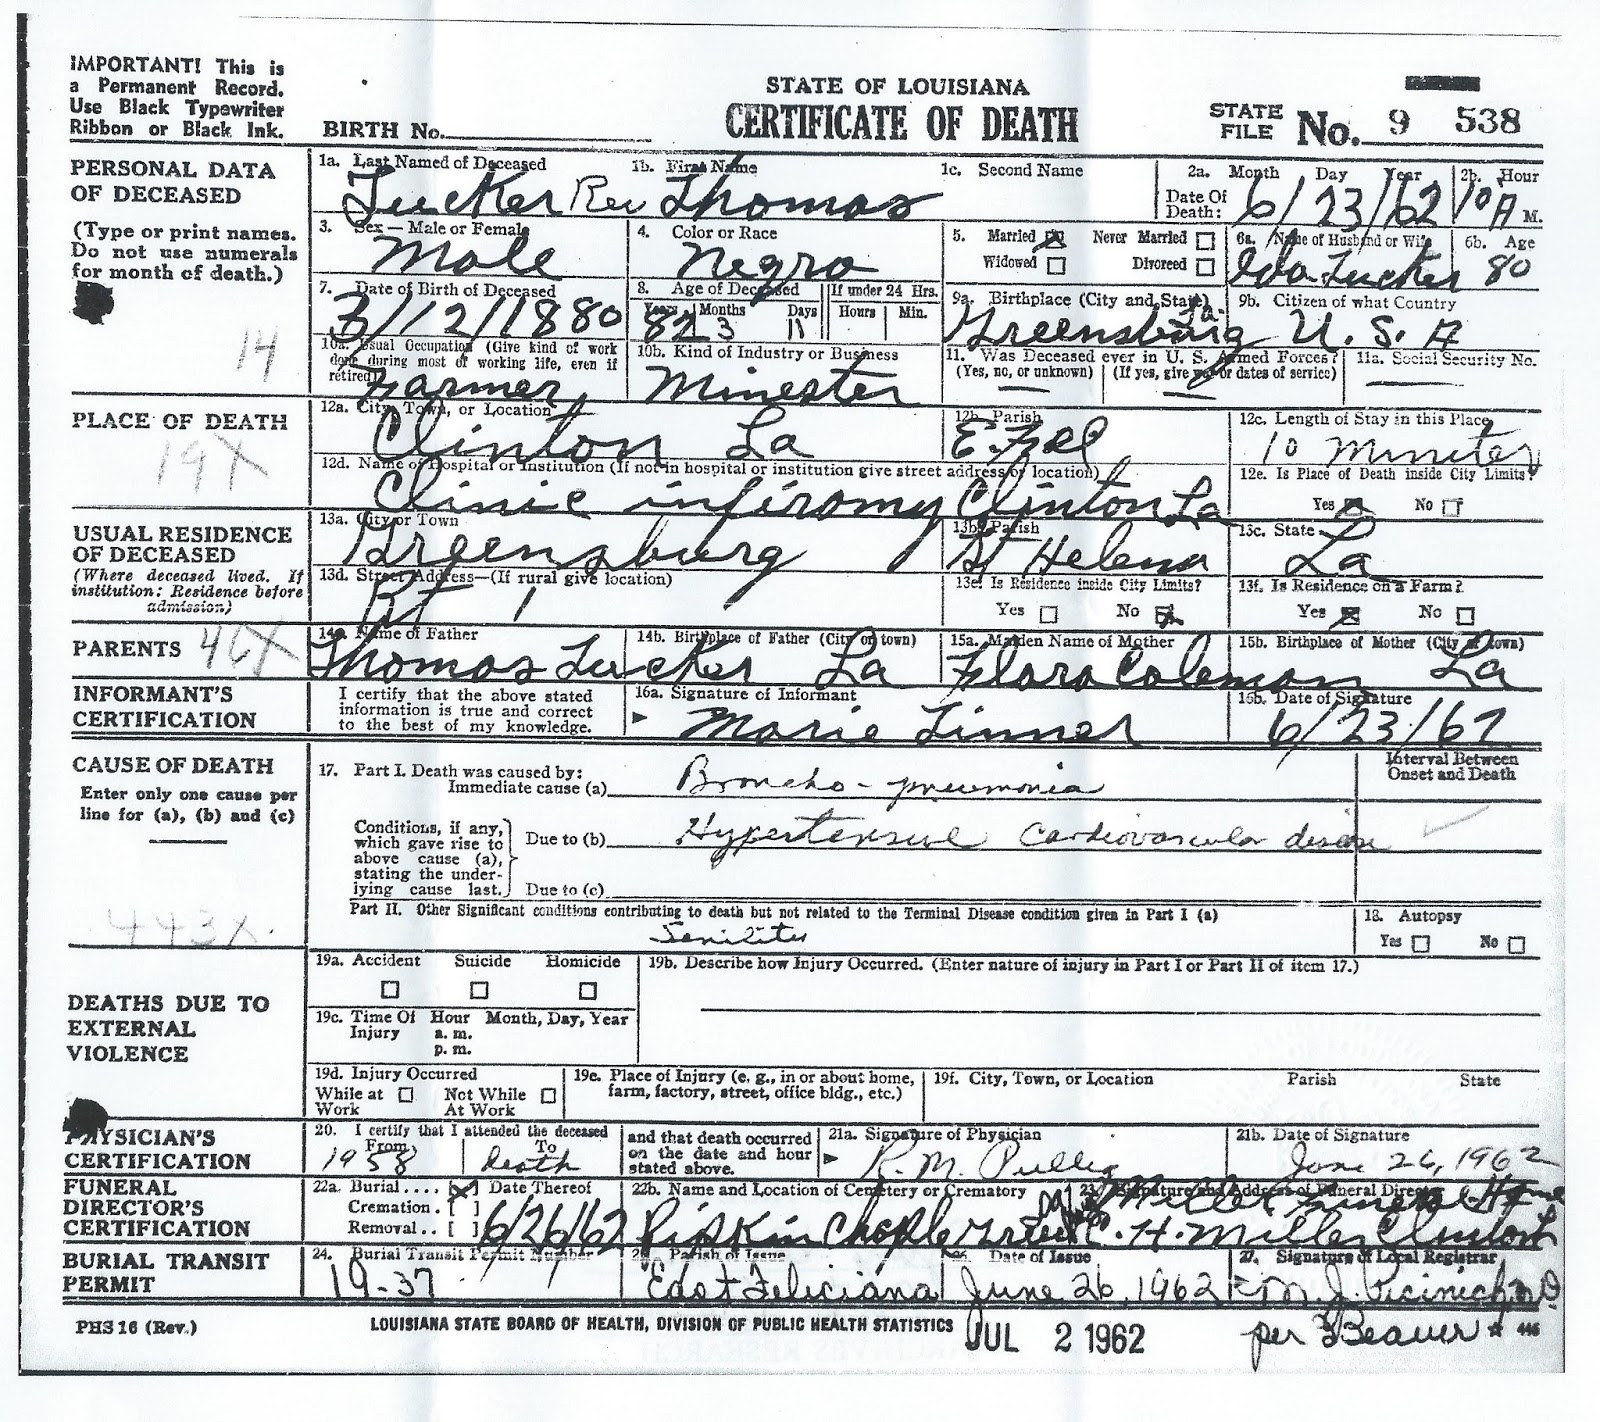 IMPORTANT! This is
a Permanent Record.
Use Black Typewriter
Ribbon or Black Ink.
BIRTH No.
STATE OF LOUISIANA
CERTIFICATE OF DEATH
STATE FILE No. 9 538
PERSONAL DATA
OF DECEASED
(Type or print names.
Do not use numerals
for month of death.)
14
1a. Last Named of Deceased 1b. First Name 1c. Second Name 2a. Month Day Year 2b. Hour
Tucker Rev Thomas Date Of Death: 6/23/62 10 A M.
3. Sex — Male or Female 4. Color or Race 5. Married Never Married 6a. Name of Husband or Wife 6b. Age
Male Negro Widowed Divorced Tucker 80
7. Date of Birth of Deceased 8. Age of Deceased If under 24 Hrs. 9a. Birthplace (City and State) 9b. Citizen of what Country
Years Months Days Hours Min.
3/12/1880 82 3 11 Greensburg La. U. S. A
10a. Usual Occupation (Give kind of work
done during most of working life, even if
retired)
Farmer
10b. Kind of Industry or Business
Minester
11. Was Deceased ever in U. S. Armed Forces?
(Yes, no, or unknown) (If yes, give war or dates of service)
11a. Social Security No.
PLACE OF DEATH
19X
12a. City, Town, or Location 12b. Parish 12c. Length of Stay in this Place
Clinton La E. Fel 10 Minutes
12d. Name of Hospital or Institution (If not in hospital or institution give street address or location) 12e. Is Place of Death inside City Limits?
Clinic infiromy Clinton La Yes No
USUAL RESIDENCE
OF DECEASED
(Where deceased lived. If
institution: Residence before
admission)
13a. City or Town 13b. Parish 13c. State
Greensburg St Helena La
13d. Street Address—(If rural give location) 13e. Is Residence inside City Limits? 13f. Is Residence on a Farm?
Rt 1 Yes No Yes No
PARENTS 46X
14a. Name of Father 14b. Birthplace of Father (City or town) 15a. Maiden Name of Mother 15b. Birthplace of Mother (City or town)
Thomas Tucker La Flora Coleman La
INFORMANT'S
CERTIFICATION
I certify that the above stated
information is true and correct
to the best of my knowledge.
16a. Signature of Informant 16b. Date of Signature
Marie 6/23/62
CAUSE OF DEATH
Enter only one cause per
line for (a), (b) and (c)
443X
17. Part I. Death was caused by:
Immediate cause (a) Broncho-pneumonia
Interval Between
Onset and Death
Conditions, if any,
which gave rise to
above cause (a),
stating the under-
lying cause last.
Due to (b) Hypertensive cardiovascular disease
Due to (c)
Part II. Other Significant conditions contributing to death but not related to the Terminal Disease condition given in Part I (a)
Senility
18. Autopsy
Yes No
DEATHS DUE TO
EXTERNAL
VIOLENCE
19a. Accident Suicide Homicide 19b. Describe how Injury Occurred. (Enter nature of injury in Part I or Part II of item 17.)
19c. Time Of Injury Hour a. m. p. m. Month, Day, Year
19d. Injury Occurred
While at Work Not While At Work
19e. Place of Injury (e. g., in or about home,
farm, factory, street, office bldg., etc.)
19f. City, Town, or Location Parish State
PHYSICIAN'S
CERTIFICATION
20. I certify that I attended the deceased
From To
1958 death
and that death occurred
on the date and hour
stated above.
21a. Signature of Physician 21b. Date of Signature
R. M. June 26, 1962
FUNERAL
DIRECTOR'S
CERTIFICATION
22a. Burial.... Date Thereof
Cremation.
Removal..
6/26/62
22b. Name and Location of Cemetery or Crematory
Pipkin Chaple
23. Signature and Address of Funeral Director
Miller Funeral Home
C. H. Miller Clinton La
BURIAL TRANSIT
PERMIT
24. Burial Transit Permit Number 25. Parish of Issue 26. Date of Issue 27. Signature of Local Registrar
19-37 East Feliciana June 26, 1962 M. J.
per Beaver
PHS 16 (Rev.)
LOUISIANA STATE BOARD OF HEALTH, DIVISION OF PUBLIC HEALTH STATISTICS
JUL 2 1962